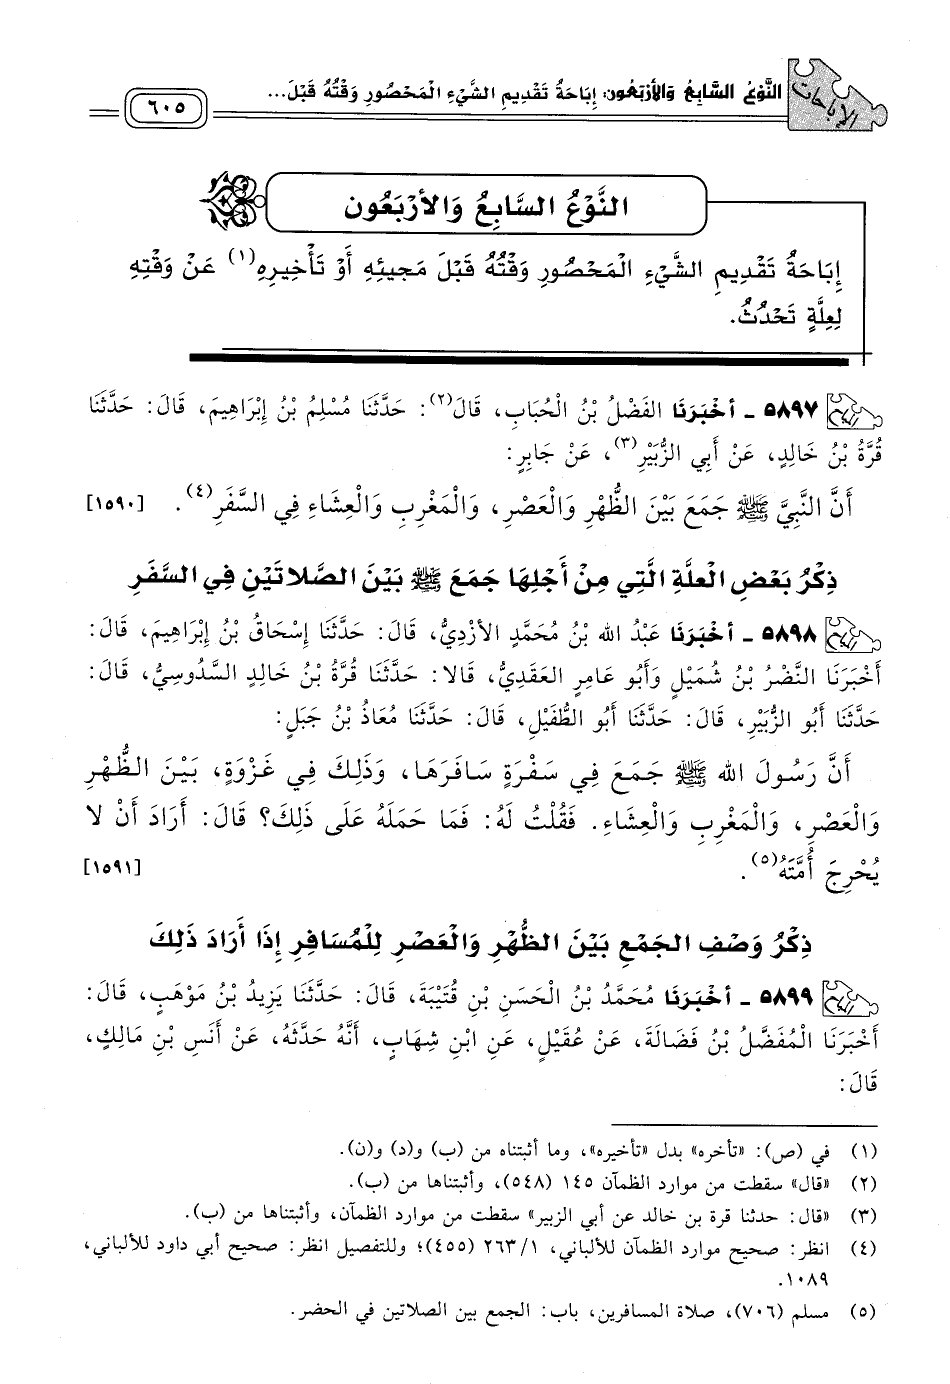 الإباحات
النَّوْعُ السَّابِعُ وَالأَرْبَعُون: إِبَاحَةُ تَقْدِيمِ الشَّيْءِ الْمَحْصُورِ وَقْتُهُ قَبْلَ...
٦٠٥
النَّوْعُ السَّابِعُ وَالأَرْبَعُون
إِبَاحَةُ تَقْدِيمِ الشَّيْءِ الْمَحْصُورِ وَقْتُهُ قَبْلَ مَجِيئِهِ أَوْ تَأْخِيرِهِ(١) عَنْ وَقْتِهِ
لِعِلَّةٍ تَحْدُثُ.
٥٨٩٧ - أَخْبَرَنَا الفَضْلُ بْنُ الْحُبَابِ، قَالَ(٢): حَدَّثَنَا مُسْلِمُ بْنُ إِبْرَاهِيمَ، قَالَ: حَدَّثَنَا
قُرَّةُ بْنُ خَالِدٍ، عَنْ أَبِي الزُّبَيْرِ(٣)، عَنْ جَابِرٍ:
أَنَّ النَّبِيَّ ﷺ جَمَعَ بَيْنَ الظُّهْرِ وَالْعَصْرِ، وَالْمَغْرِبِ وَالْعِشَاءِ فِي السَّفَرِ(٤). [١٥٩٠]
ذِكْرُ بَعْضِ الْعِلَّةِ الَّتِي مِنْ أَجْلِهَا جَمَعَ ﷺ بَيْنَ الصَّلَاتَيْنِ فِي السَّفَرِ
٥٨٩٨ - أَخْبَرَنَا عَبْدُ الله بْنُ مُحَمَّدٍ الأَزْدِيُّ، قَالَ: حَدَّثَنَا إِسْحَاقُ بْنُ إِبْرَاهِيمَ، قَالَ:
أَخْبَرَنَا النَّضْرُ بْنُ شُمَيْلٍ وَأَبُو عَامِرٍ العَقَدِيُّ، قَالا: حَدَّثَنَا قُرَّةُ بْنُ خَالِدٍ السَّدُوسِيُّ، قَالَ:
حَدَّثَنَا أَبُو الزُّبَيْرِ، قَالَ: حَدَّثَنَا أَبُو الطُّفَيْلِ، قَالَ: حَدَّثَنَا مُعَاذُ بْنُ جَبَلٍ:
أَنَّ رَسُولَ الله ﷺ جَمَعَ فِي سَفْرَةٍ سَافَرَهَا، وَذَلِكَ فِي غَزْوَةٍ، بَيْنَ الظُّهْرِ
وَالْعَصْرِ، وَالْمَغْرِبِ وَالْعِشَاءِ. فَقُلْتُ لَهُ: فَمَا حَمَلَهُ عَلَى ذَلِكَ؟ قَالَ: أَرَادَ أَنْ لا
يُحْرِجَ أُمَّتَهُ(٥). [١٥٩١]
ذِكْرُ وَصْفِ الجَمْعِ بَيْنَ الظُّهْرِ وَالْعَصْرِ لِلْمُسَافِرِ إِذَا أَرَادَ ذَلِكَ
٥٨٩٩ - أَخْبَرَنَا مُحَمَّدُ بْنُ الْحَسَنِ بْنِ قُتَيْبَةَ، قَالَ: حَدَّثَنَا يَزِيدُ بْنُ مَوْهَبٍ، قَالَ:
أَخْبَرَنَا الْمُفَضَّلُ بْنُ فَضَالَةَ، عَنْ عُقَيْلٍ، عَنِ ابْنِ شِهَابٍ، أَنَّهُ حَدَّثَهُ، عَنْ أَنَسِ بْنِ مَالِكٍ،
قَالَ:
(١) في (ص): «تأخره» بدل «تأخيره»، وما أثبتناه من (ب) و(د) و(ن).
(٢) «قال» سقطت من موارد الظمآن ١٤٥ (٥٤٨)، وأثبتناها من (ب).
(٣) «قال: حدثنا قرة بن خالد عن أبي الزبير» سقطت من موارد الظمآن، وأثبتناها من (ب).
(٤) انظر: صحيح موارد الظمآن للألباني، ١/ ٢٦٣ (٤٥٥)؛ وللتفصيل انظر: صحيح أبي داود للألباني،
١٠٨٩.
(٥) مسلم (٧٠٦)، صلاة المسافرين، باب: الجمع بين الصلاتين في الحضر.